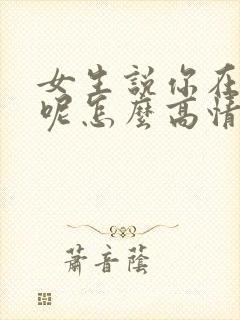 女生説你在
呢怎麼高情
蕭音蔭